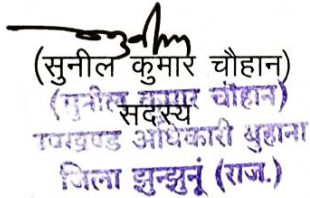 (सुनील कुमार चौहान)
(सुनील कुमार चौहान)
सदस्य
उपखण्ड अधिकारी बुहाना
जिला झुन्झुनूं (राज.)